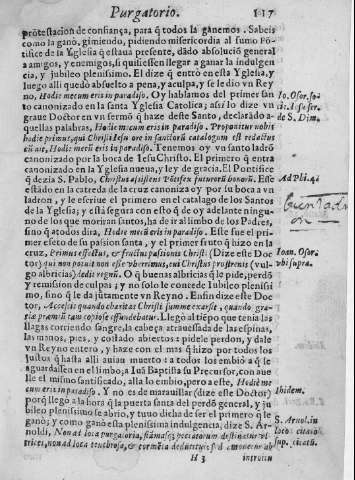 Purgatorio. 117
protestacion de confiança, para q̃ todos la ganemos. Sabeis
como la ganò, gimiendo, pidiendo misericordia al sumo Põ-
tifice de la Yglesia q̃ estaua presente, dãdo absoluciõ general
a amigos, y enemigos, si quisiessen llegar a ganar la indulgen
cia, y jubileo plenissimo. El dize q̃ entrò en esta Yglesia, y
luego alli quedò absuelto a pena, y a culpa, y se le dio vn Rey
no, Hodie mecum eris in paradiso. Oy hablamos del primer san
to canonizado en la santa Yglesia Catolica; assi lo dize vn
graue Doctor en vn sermõ q̃ haze deste Santo, declarãdo a-
quellas palabras, Hodie mecum eris in paradiso.
hodie primus, qui Christi Iesu ore in sanctorũ catalogum est redactus
cũ ait, Hodie mecũ eris in paradiso. Tenemos oy vn santo ladrõ
canonizado por la boca de Iesu Christo. El primero q̃ entra
canonizado en la Yglesia nueua, y ley de gracia. El Pontifice
q̃ dezia S. Pablo, Christus assistens Põtifex futurorũ bonorũ. Este
estãdo en la catreda de la cruz canoniza oy por su boca a vn
ladron, y le escriue el primero en el catalago de los Santos
de la Yglesia; y està segura con esto q̃ de oy adelante ningu-
no de los que murieren santos, ha de ir al limbo de los Padres,
sino q̃ a todos dira, Hodie mecũ eris in paradiso. Este fue el pri-
mer efeto de su passion santa, y el primer fruto q̃ hizo en la
cruz, Primus effectus, er fructus passionis Christi (Dize este Doc
tor) qui non potuit non esse vberrimus, cui Christus promittit (vul-
go albricias) sedis regnũ. O q̃ buenas albricias q̃ le pide, perdõ
y remission de culpas; y no solo le concede Iubileo plenissi
mo, sino q̃ le da jũtamente vn Reyno. En fin dize este Doc
tor, Accessit quando charitas Christi summe exarsit, quando gra-
tiæ præmiũ tam copiose effundebatur. Llegò al tiẽpo que tenia las
llagas corriendo sangre, la cabeça atrauessada de las espinas,
las manos, pies, y costado abiertos: pidele perdon, y dale
vn Reyno entero, y haze con el mas q̃ hizo por todos los
justos q̃ hasta alli auian muerto: a todos los embiò a q̃ le
aguardassen en el limbo; a Iuã Baptista su Precursor, con aue
lle el mismo santificado, alla lo embio, pero a este, Hodie me
cum eris in paradiso. Y no es de marauillar (dize este Doctor)
porq̃ llegò a la hora q̃ la puerta santa del perdõ general, y ju
bileo plenissimo se abrio, y tuuo dicha de ser el primero q̃ le
ganò; y como ganò esta plenissima indulgencia, dize S. Ar-
noldi, Non at loca purgatoria,
H 3 introitu
Io. Osor. to
S. Dim.
Ad
Ioan. Osor.
vbi supra.
Ibidem.
S. Arnol. in
loco citato
sup. citatũ.